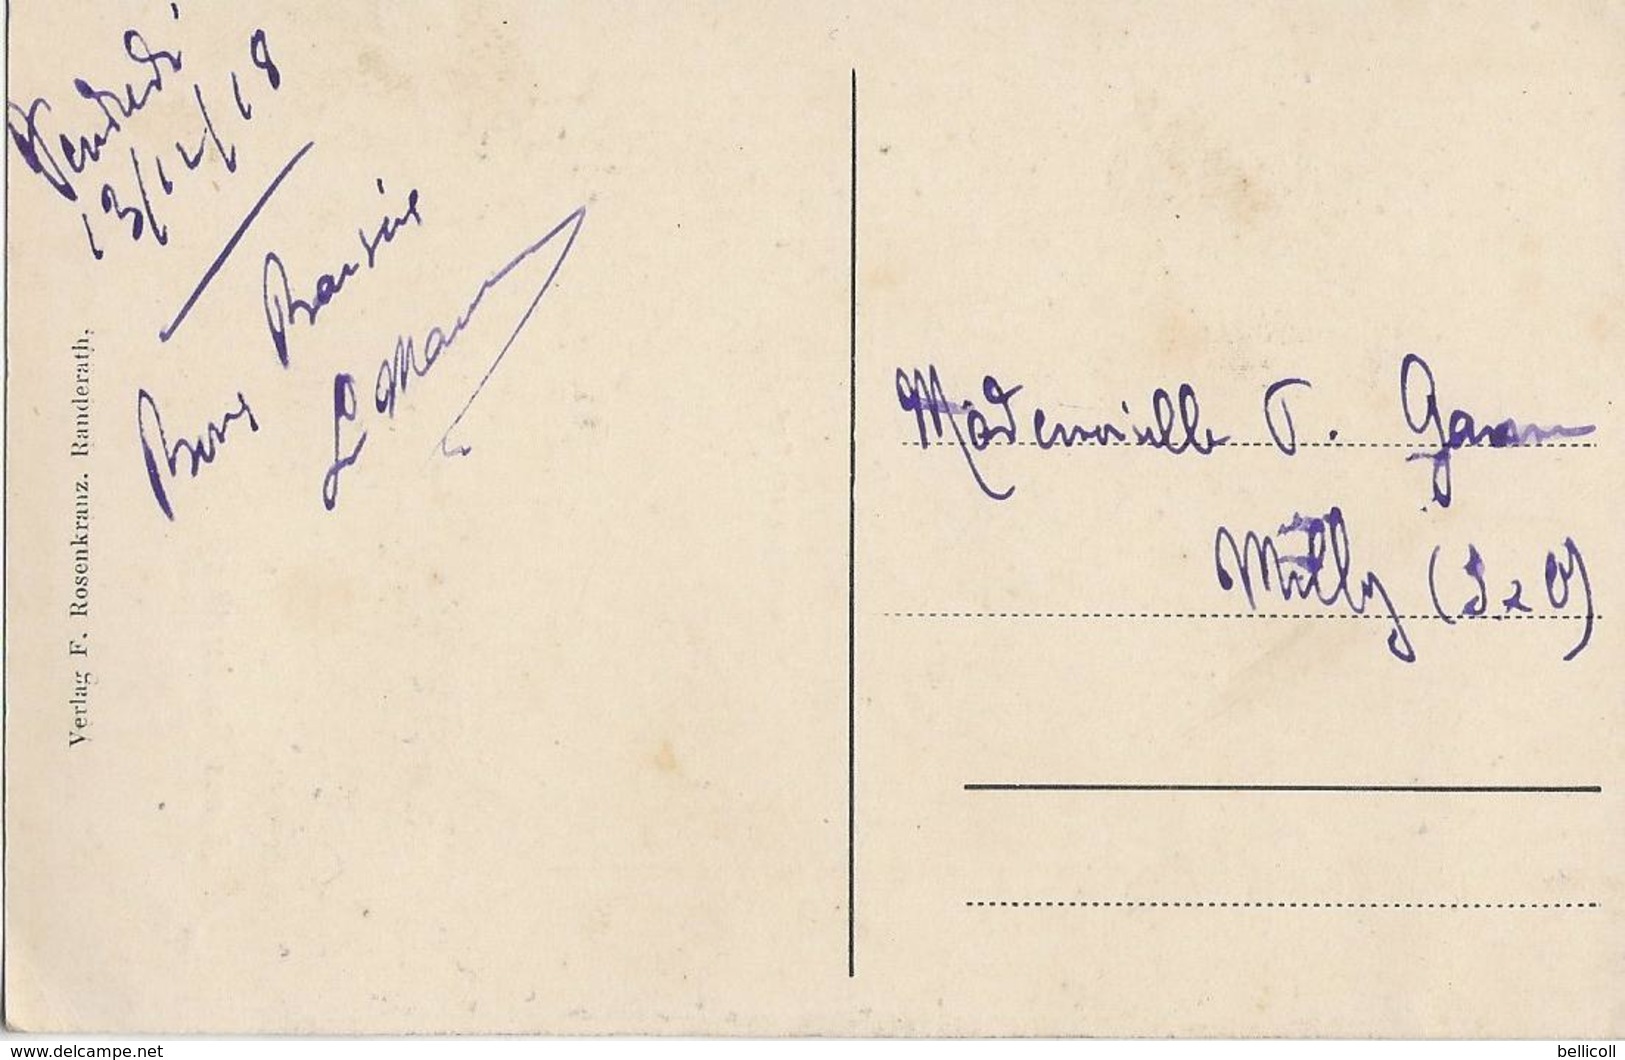 Vendredi
13/12/18
Bons Baisers
Mademoiselle
Milly (S & O)
Verlag F. Rosenkranz. Randerath.
www.delcampe.net
bellicoll